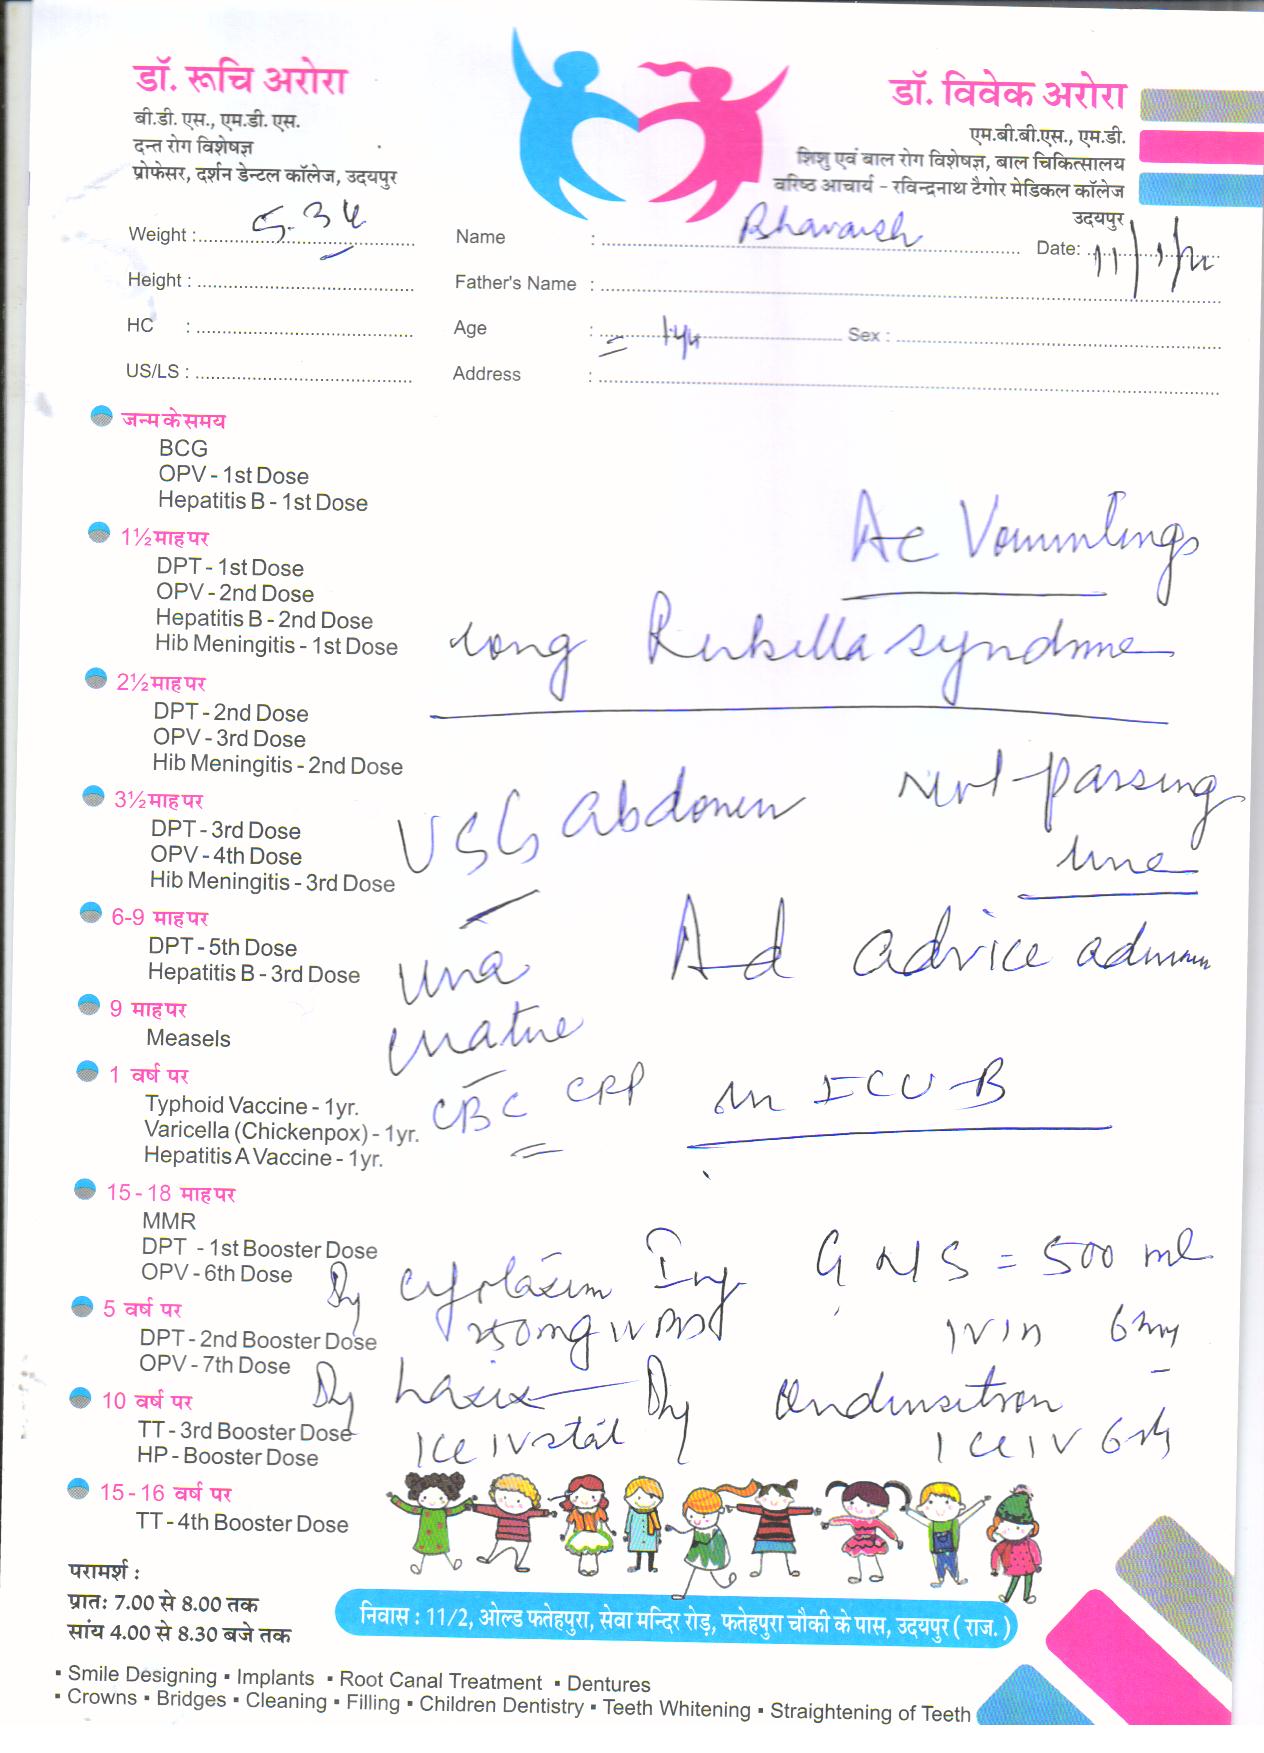 डॉ. रूचि अरोरा
बी.डी. एस., एम.डी. एस.
दन्त रोग विशेषज्ञ
प्रोफेसर, दर्शन डेन्टल कॉलेज, उदयपुर
डॉ. विवेक अरोरा
एम.बी.बी.एस., एम.डी.
शिशु एवं बाल रोग विशेषज्ञ, बाल चिकित्सालय
वरिष्ठ आचार्य - रविन्द्रनाथ टैगोर मेडिकल कॉलेज
उदयपुर
Weight : 5.34 Name : Date: 11/1/22
Height : Father's Name :
HC : Age : = 1yr Sex :
US/LS : Address :
जन्म के समय
BCG
OPV - 1st Dose
Hepatitis B - 1st Dose
1½ माह पर
DPT - 1st Dose
OPV - 2nd Dose
Hepatitis B - 2nd Dose
Hib Meningitis - 1st Dose
2½ माह पर
DPT - 2nd Dose
OPV - 3rd Dose
Hib Meningitis - 2nd Dose
3½ माह पर
DPT - 3rd Dose
OPV - 4th Dose
Hib Meningitis - 3rd Dose
6-9 माह पर
DPT - 5th Dose
Hepatitis B - 3rd Dose
9 माह पर
Measels
1 वर्ष पर
Typhoid Vaccine - 1yr.
Varicella (Chickenpox) - 1yr.
Hepatitis A Vaccine - 1yr.
15 - 18 माह पर
MMR
DPT - 1st Booster Dose
OPV - 6th Dose
5 वर्ष पर
DPT - 2nd Booster Dose
OPV - 7th Dose
10 वर्ष पर
TT - 3rd Booster Dose
HP - Booster Dose
15 - 16 वर्ष पर
TT - 4th Booster Dose
Ac Vommitings
cong Rubella syndrome
USG abdomen Not passing
urine
Ad advice
CBC CRP in ICU-B
Inj GNS = 500 ml
IV in
lasix
IV stat IV
परामर्श :
प्रातः 7.00 से 8.00 तक
सांय 4.00 से 8.30 बजे तक
निवास : 11/2, ओल्ड फतेहपुरा, सेवा मन्दिर रोड़, फतेहपुरा चौकी के पास, उदयपुर ( राज. )
▪ Smile Designing ▪ Implants ▪ Root Canal Treatment ▪ Dentures
▪ Crowns ▪ Bridges ▪ Cleaning ▪ Filling ▪ Children Dentistry ▪ Teeth Whitening ▪ Straightening of Teeth